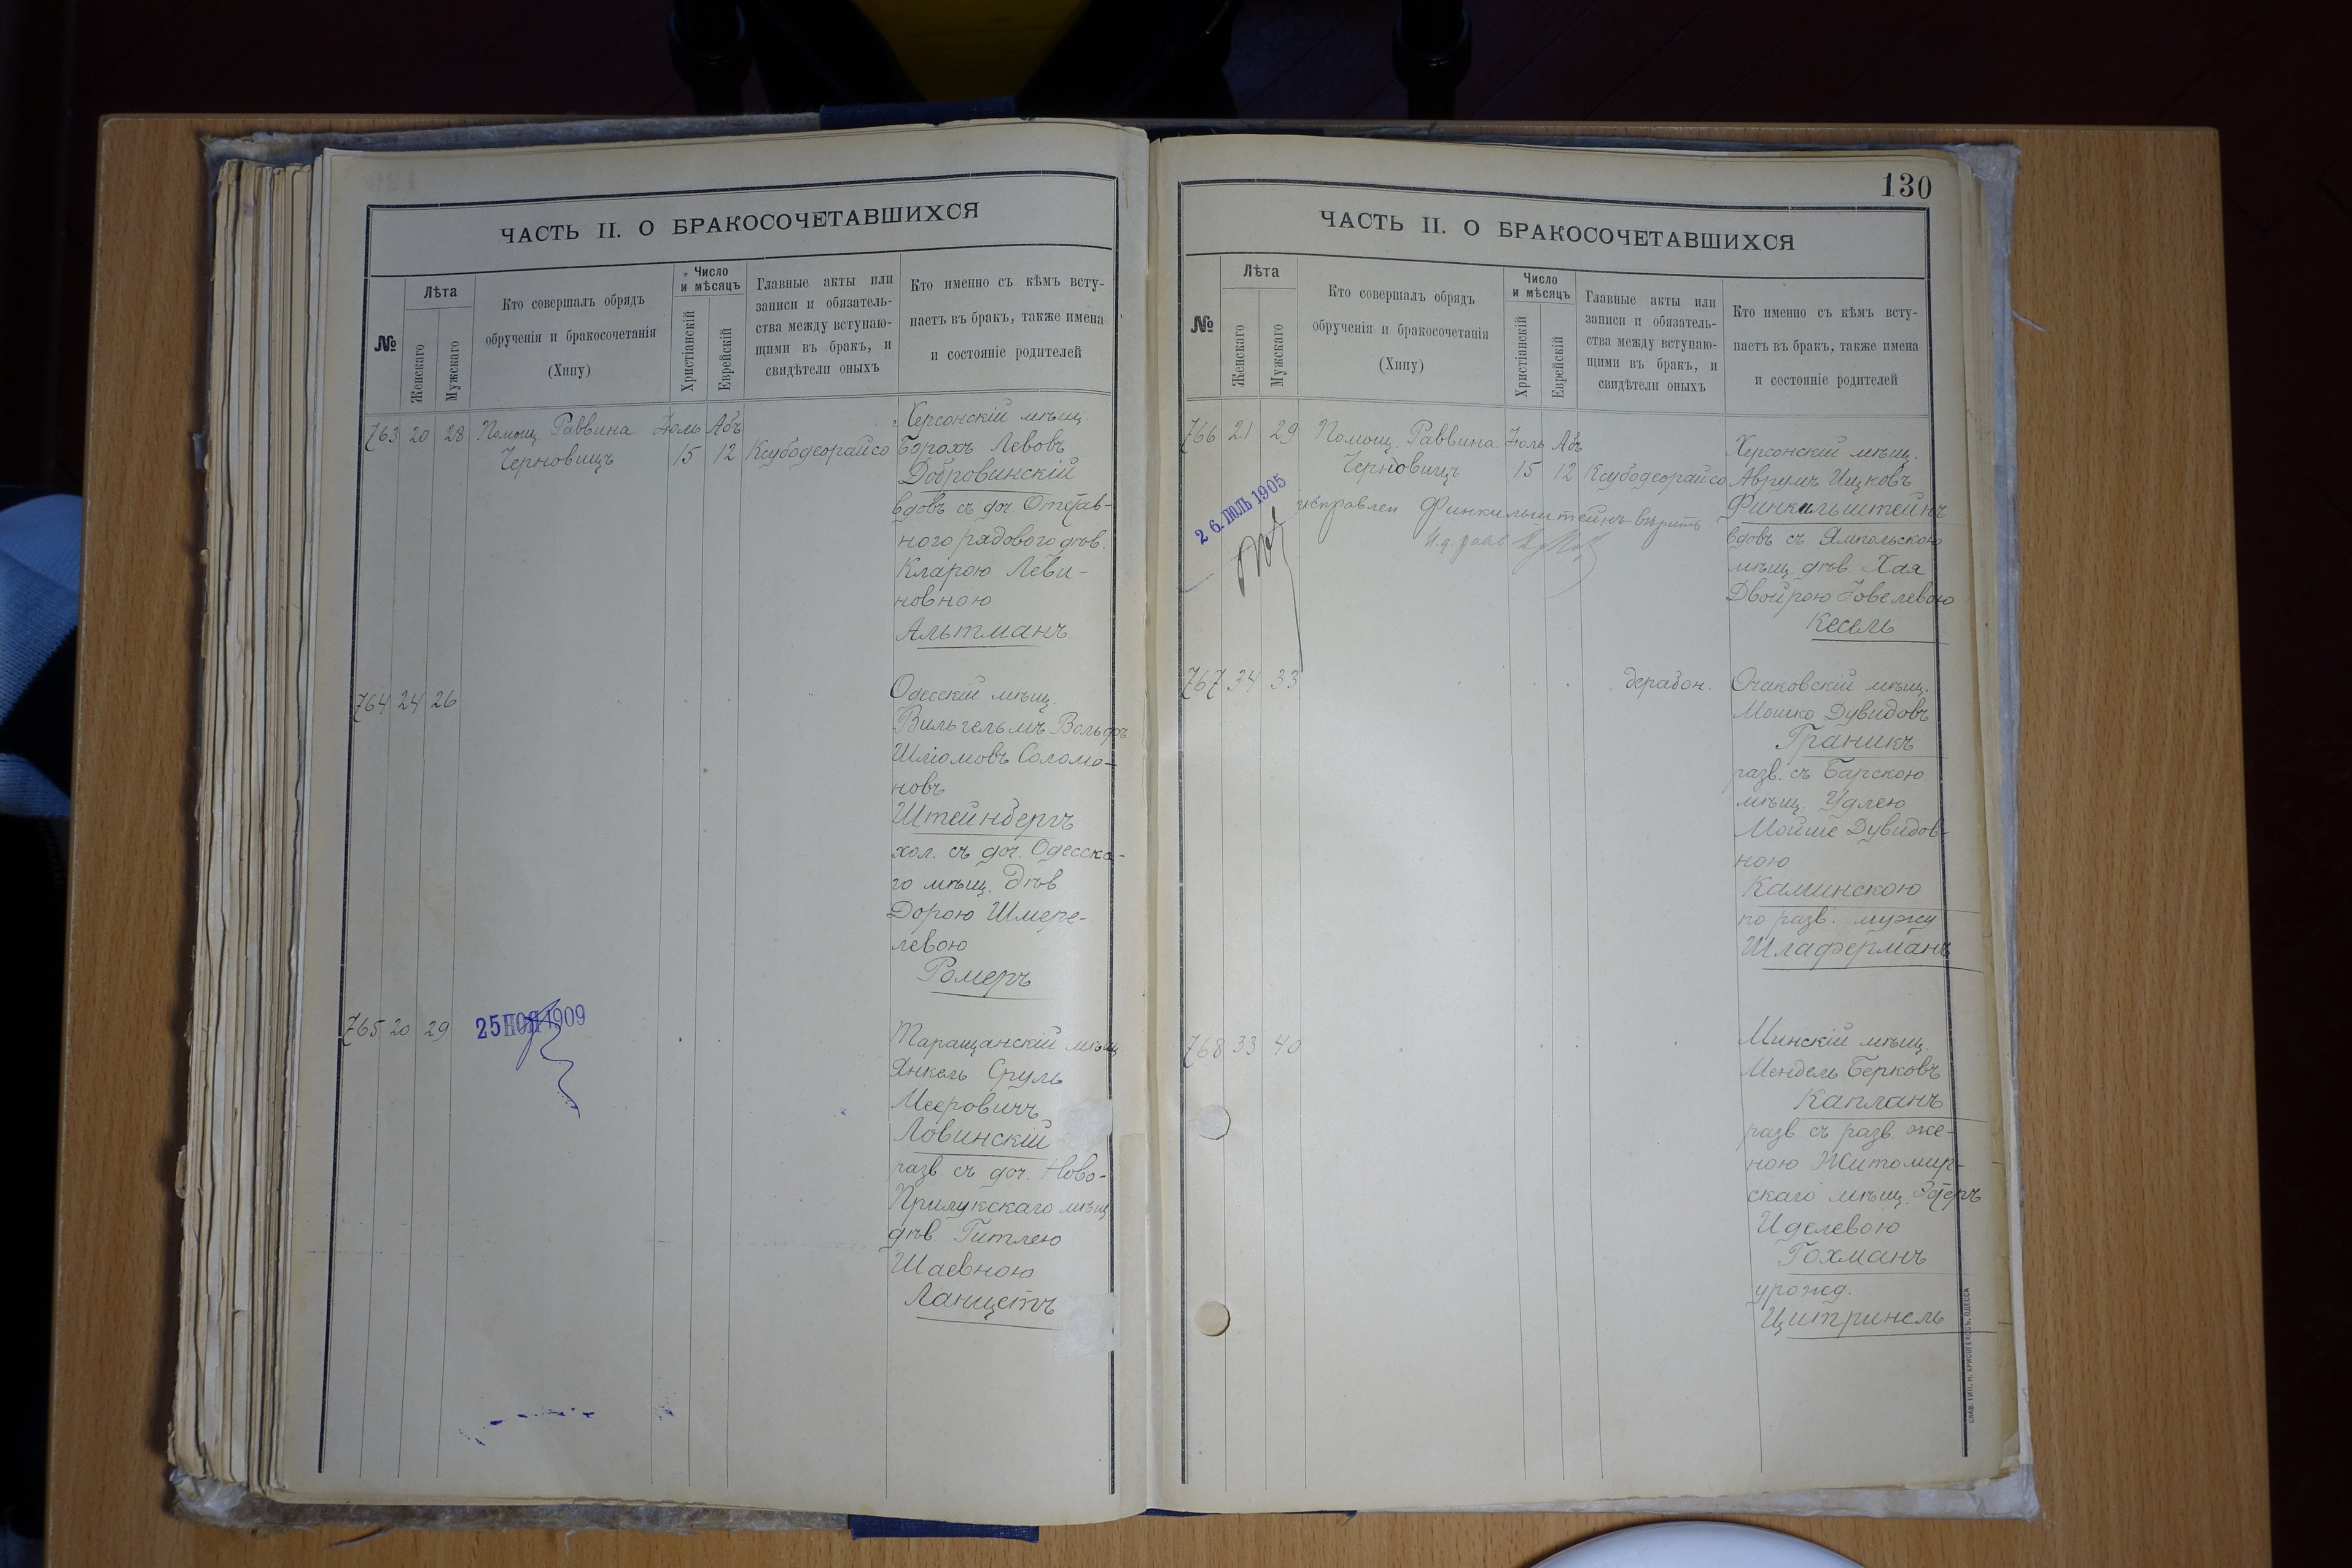 ЧАСТЬ II. О БРАКОСОЧЕТАВШИХСЯ
№
Лѣта
Женскаго
Мужскаго
Кто совершалъ обрядъ
обрученія и бракосочетанія
(Хипу)
Число
и мѣсяцъ
Христіанскій
Еврейскій
Главные акты или
записи и обязатель-
ства между вступаю-
щими въ бракъ, и
свидѣтели оныхъ
Кто именно съ кѣмъ всту-
паетъ въ бракъ, также имена
и состояніе родителей
763 20 28 Помощ. Раввина Іюль Абъ
Черновицъ 15 12 Ксубодеорайсо
Херсонскій мѣщ.
Борохъ Левовъ
Добровинскій
вдовъ съ доч. Отстав-
ного рядового дѣв.
Кларою Леви-
новною
Альтманъ
764 24 26
Одесскій мѣщ.
Вильгельмъ Вольфъ
Шліомовъ Соломо-
новъ
Штейнбергъ
хол. съ доч. Одесска-
го мѣщ. дѣв.
Дорою Шмере-
левою
Ромеръ
765 20 29
25 НОЯ 1909
Таращанскій мѣщ.
Янкель Сруль
Мееровичъ
Ловинскій
разв. съ доч. Ново-
Прилукскаго мѣщ.
дѣв. Гитлею
Шаевною
Ланцетъ
130
ЧАСТЬ II. О БРАКОСОЧЕТАВШИХСЯ
№
Лѣта
Женскаго
Мужскаго
Кто совершалъ обрядъ
обрученія и бракосочетанія
(Хипу)
Число
и мѣсяцъ
Христіанскій
Еврейскій
Главные акты или
записи и обязатель-
ства между вступаю-
щими въ бракъ, и
свидѣтели оныхъ
Кто именно съ кѣмъ всту-
паетъ въ бракъ, также имена
и состояніе родителей
766 21 29 Помощ. Раввина Іюль Абъ
Черновицъ 15 12 Ксубодеорайсо
26. ІЮЛЬ 1905
исправлен Финкильштейнъ вѣрить
И.д. равв
Херсонскій мѣщ.
Аврумъ Ицковъ
Финкильштейнъ
вдовъ съ Ямпольскою
мѣщ. дѣв. Хая
Двойрою Іовелевою
Кесель
767 34 33 дерабон.
Очаковскій мѣщ.
Мошко Дувидовъ
Граникъ
разв. съ Барскою
мѣщ. Удлею
Мойше Дувидов-
ною
Каминскою
по разв. мужу
Шлаферманъ
768 33 40
Минскій мѣщ.
Мендель Берковъ
Капланъ
разв. съ разв. же-
ною Житомир-
скаго мѣщ.
Иделевою
Гохманъ
урожд.
Цитринель
СЛАВ. ТИП. Н. ХРИСОГЕЛОСЪ, ОДЕССА